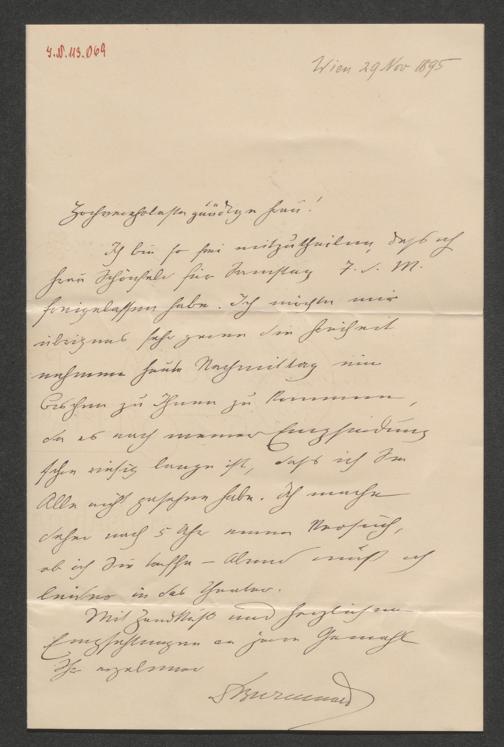 I.N. 113.069
Wien 29 Nov 1895
Hochverehrteste gnädige Frau!
Ich bin so frei mitzutheilen, daß ich
Frau Schönfeld für Samstag 7. d. M.
freigelassen habe. Ich möchte mir
übrigens sehr gerne die Freiheit
nehmen heute Nachmittag ein
bischen zu Ihnen zu kommen,
da es nach meiner Empfindung
schon riesig lange ist, daß ich Sie
Alle nicht gesehen habe. Ich mache
daher nach 5 Uhr einen Versuch,
ob ich Sie treffe – Abend muß ich
leider in das Theater.
Mit Handkuß und herzlichen
Empfehlungen an Herrn Gemahl
Ihr ergebener